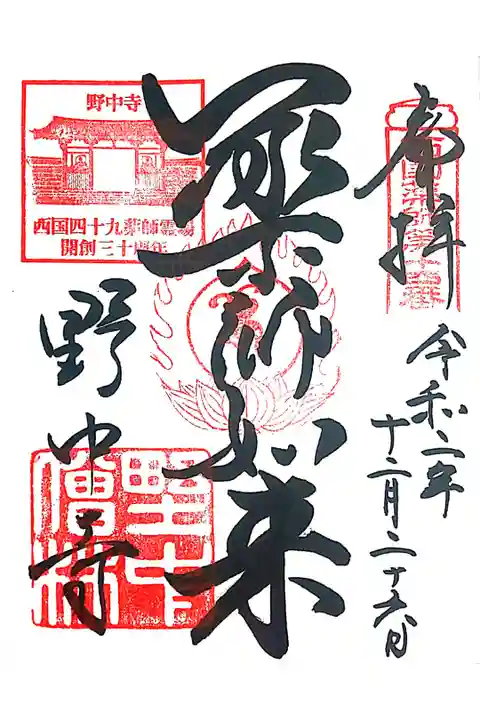 奉拝
令和二年
十二月二十六日
薬師如来
野中寺
西国四十九薬師霊場
開創三十周年
野中寺